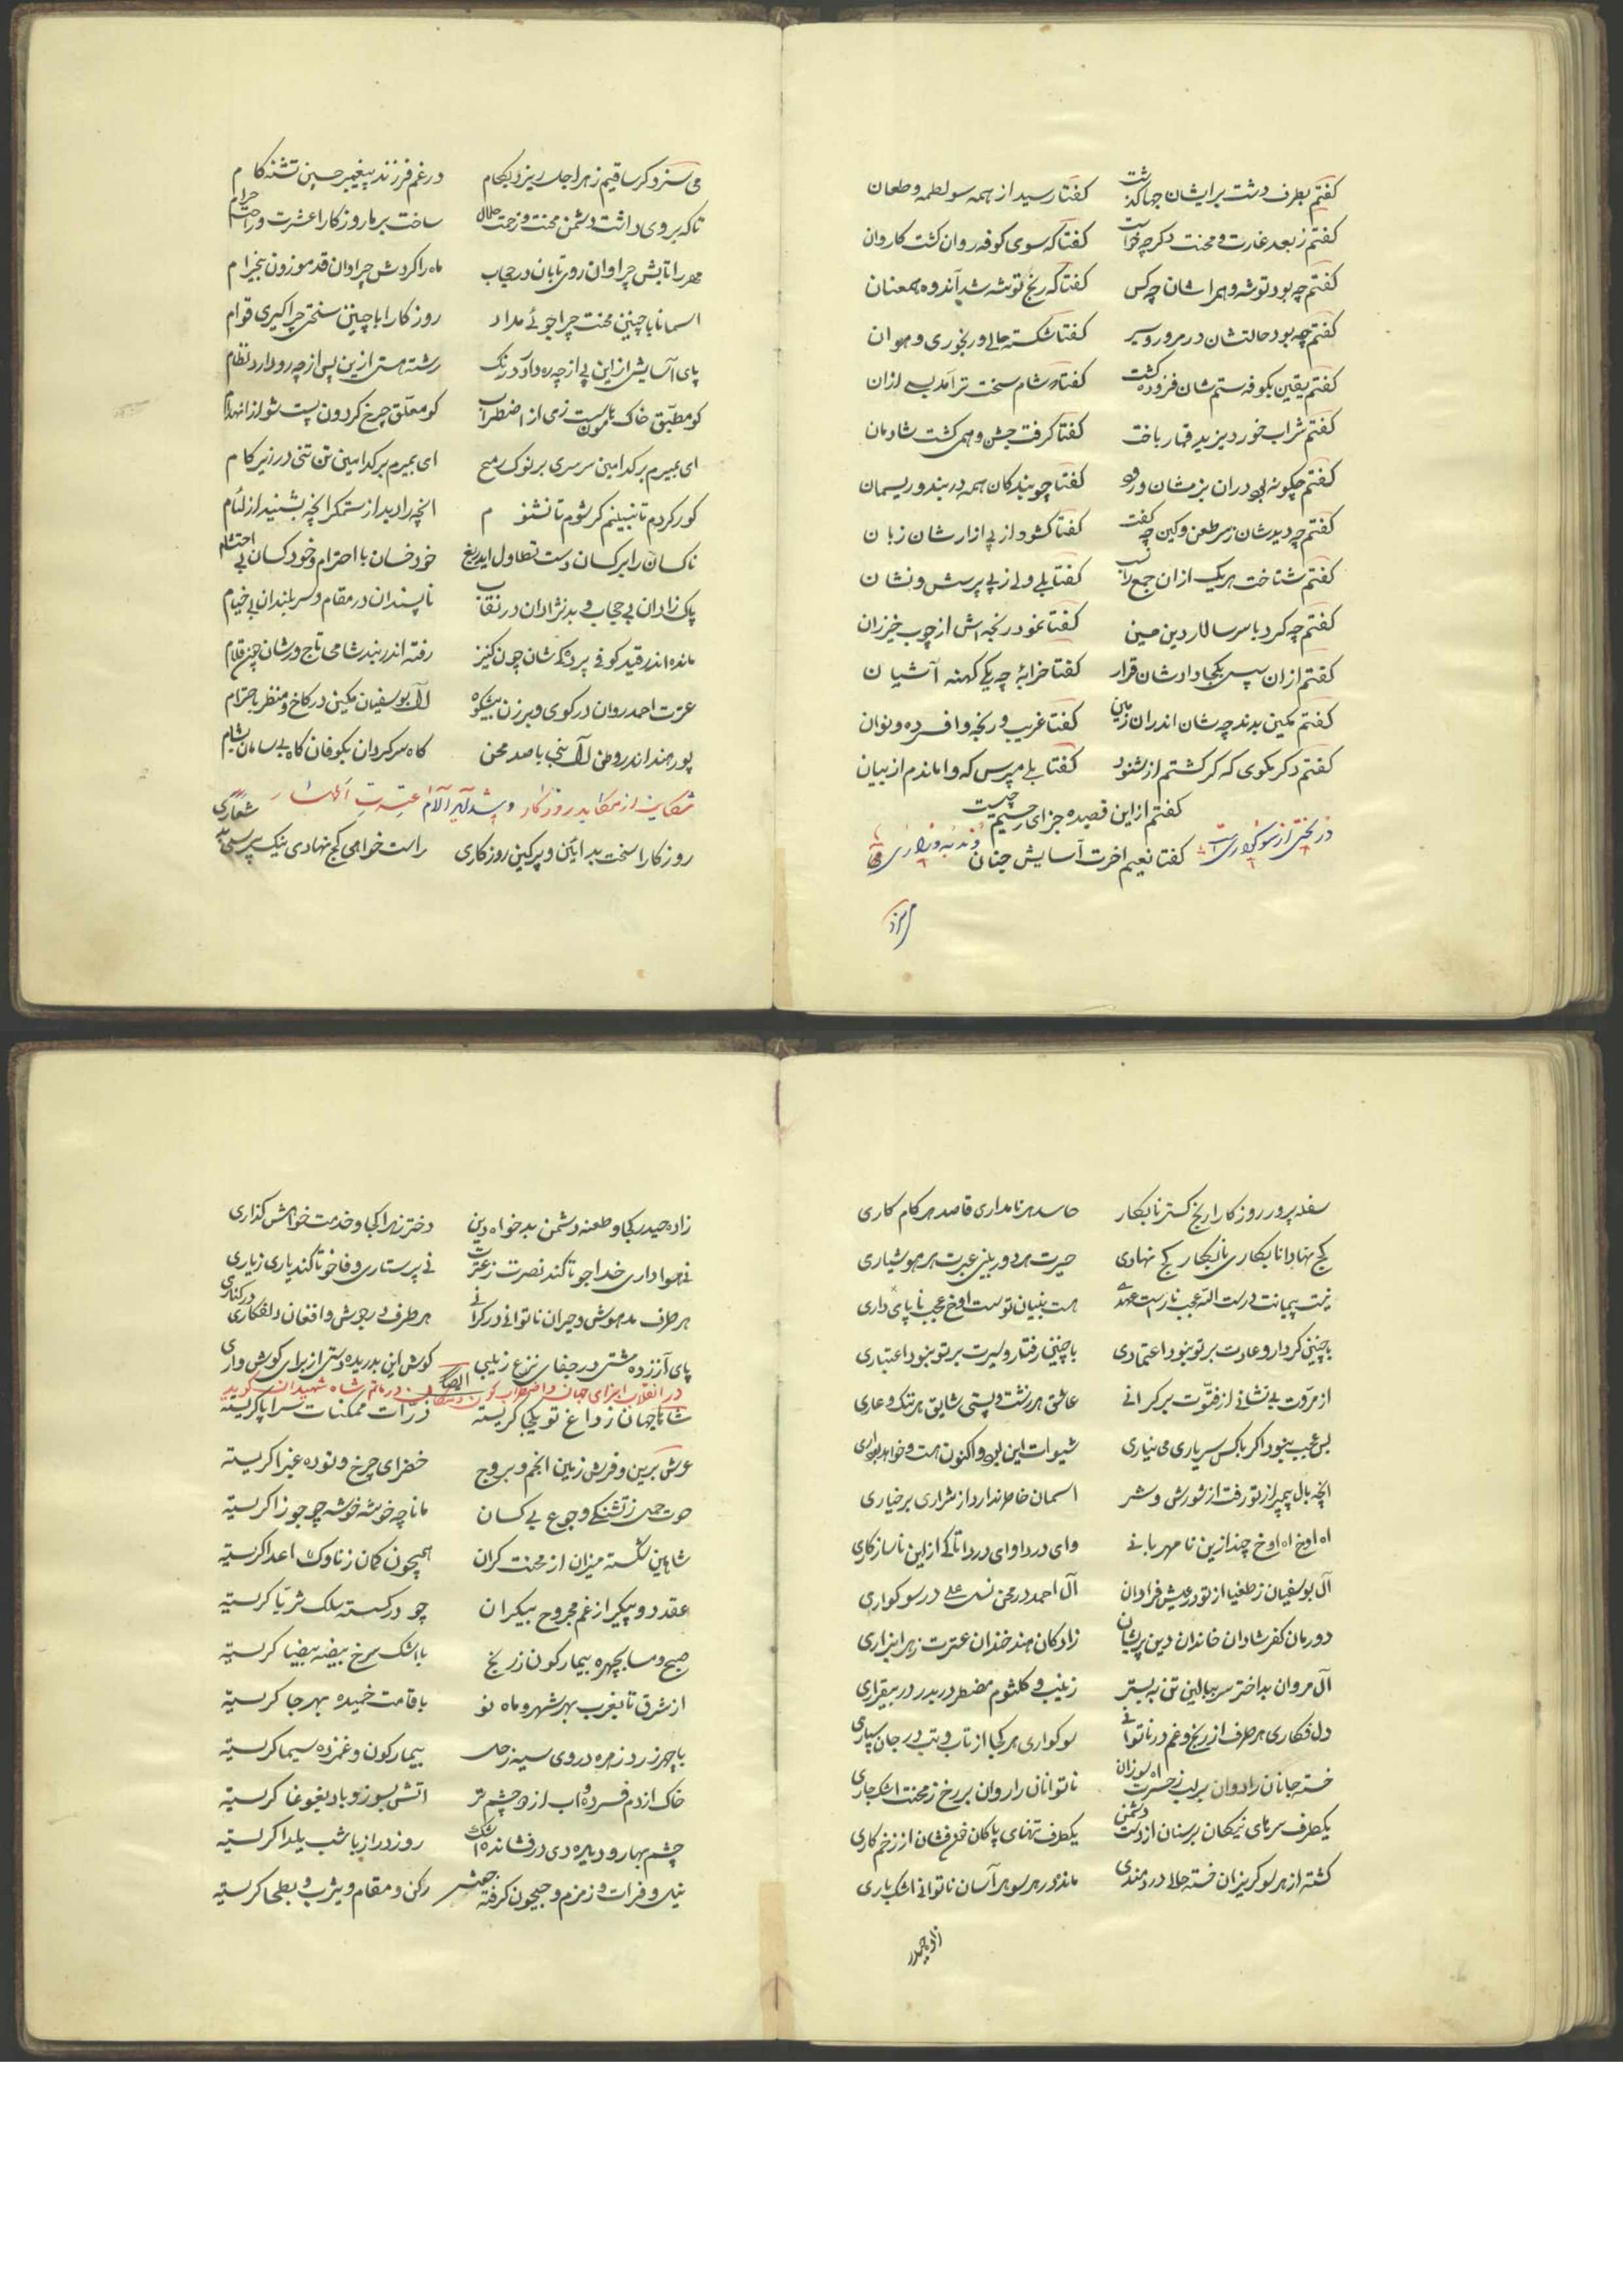 کفتم بطرف دشت برایشان چها کذشت کفتا رسید از همه سو لطمه و طعان
کفتم ز بعد غارت و محنت دکر چه خواست کفتا که سوی کوفه روان کشت کاروان
کفتم چه بود توشه و همراهشان چه کس کفتا که رنج توشه شد اندوه همعنان
کفتم چه بود حالتشان در مرور و سیر کفتا شکسته حالی و رنجوری و هوان
کفتم یقین بکوفه ستم شان فزوده کشت کفتا که شام سخت تر آمد بسی ازان
کفتم شراب خورد یزید و قمار باخت کفتا کرفت جشن و همی کشت شادمان
کفتم چکونه بود دران بزمشان ورود کفتا چو بندکان همه در بند و ریسمان
کفتم چه دیدشان ز سر طعن و کین چه کفت کفتا کشود از پی ازارشان زبان
کفتم شناخت هر یک ازان جمع را نسب کفتا بلی ولی ز پی پرسش و نشان
کفتم چه کرد با سر سالار دین مبین کفتا نمود رنجه اش از چوب خیزران
کفتم ازان سپس بکجا دادشان قرار کفتا خرابهٔ چه یکی کهنه آشیان
کفتم مکین بدند چه شان اندران زمان کفتا غریب و رنجه و افسرده و نوان
کفتم دکر بکوی که کر کشتم از شنود کفتا بلی مپرس که واماندم از بیان
کفتم از این قصیده جزای رحیم چیست
کفتا نعیم اخرت آسایش جنان
در بختی از سوکواری است و ندبه و زاری
می سزد
می سزد کر ساقیم زهر اجل ریزد بکام در غم فرزند پیغمبر حسین تشنه کام
تا که بر وی داشت دشمن محنت و زحمت حلال ساخت بر ما روزکارا عشرت و راحت حرام
مهر را تابش چرا و ان روی تابان در حجاب ماه را کردش چرا و ان قد موزون بیخرام
اسمانا با چنین محنت چرا جوئی مدار روزکارا با چنین سختی چرا کیری قوام
پای آسایش از این پی از چه ره دارد درنک رشته هستی ازین پس از چه رو دارد نظام
کو مطبق خاک هامون پست زی از اضطراب کو معلق چرخ کردون پست شو از انهدام
ای بمیرم بر کدامین سرسری بر نوک رمح ای بمیرم بر کدامین تن تنی در زیر کام
کور کردم تا نبینم کر شوم تا نشنوم انچه را دید از ستمکر انچه بشنید از لئام
ناکسان را بر کسان دست تطاول ایدریغ خود خسان با احترام و خود کسان بی احتشام
پاک زادان بی حجاب و بد نژادان در نقاب ناپسندان در مقام و سربلندان بی خیام
مانده اندر قید کوفی پردکی شان چون کنیز رفته اندر بند شامی تاج ورشان چون غلام
عترت احمد روان در کوی و برزن بیشکوه آل بوسفیان مکین در کاخ و منظر با احترام
پور هند اندر وطن آل نبی با صد محن کاه سرکردان بکوفان کاه بی سامان بشام
شکایت از مکاید روزکار و شداید آلام عترت اطهار
روزکارا سخت بد ایین و پر کین روزکاری راست خواهی کج نهادی نیک پرسی بد شعاری
سفله پرور روزکارا رنج کستر نابکار حاسد هر نامداری قاصد هر کام کاری
کج نهادا نابکاری نابکار کج نهادی حیرت هر دوربینی عبرت هر هوشیاری
نیست پیمانت درست الله عجب نارست عهدی هست بنیان تو سست اوخ عجب ناپای داری
با چنین کردار و عادت بر تو نبود اعتمادی با چنین رفتار و سیرت بر تو نبود اعتباری
از مروت بی نشانی از فتوت بر کرانی عاشق هر زشت و پستی شایق هر ننک و عاری
بس عجب نبود اکر با کس سر یاری می نیاری شیوه ات این بود و اکنون هست و خواهد بود اری
انچه بال پیمبر از تو رفت از شورش و شر اسمان خاطر ندارد از شراری بر خیاری
اه اوخ اه اوخ چند ازین نامهربانی وای دردا وای دردا تا کی از این ناسازکاری
آل بوسفیان ز طغیان از تو در عیش فراوان آل احمد در محن نسل علی در سوکواری
دودمان کفر شادان خاندان دین پریشان زادکان هند خندان عترت زهرا بزاری
آل مروان بد اختر سر ببالین تن به بستر زینب و کلثوم مضطر دربدر در بیقراری
دل فکاری هر طرف از رنج و غم در ناتوانی سوکواری هر کجا از تاب و تب در جان سپاری
خسته جانان را روان بر لب ز حسرت اه سوزان ناتوانان را روان بر رخ ز محنت اشک جاری
یکطرف سرهای نیکان بر سنان از دست دشمن یکطرف تنهای پاکان خون فشان از زخم کاری
کشته از هر سو کریزان خسته حالی دردمندی مانده در هر سو هراسان ناتوانی اشکباری
زاده حیدر
زاده حیدر کجا و طعنه دشمن بدخواه دین دختر زهرا کجا و خدمت خواهش کذاری
نی هواداری خدا جو تا کند نصرت ز عترت نی پرستاری وفا خو تا کند یاری ز یاری
هر طرف مدهوش و حیران ناتوانی در کرانی هر طرف در جوش و افغان دلفکاری در کناری
پای آزرده مشتی در جفای نزع زیبی کوش این بدریده دستی از برای کوش واری
ایضا در انقلاب اجزای جهان و اضطراب کون و مکان در ماتم شاه شهیدان کوید
شاها جهان ز داغ تو یکجا کریسته ذرات ممکنات سراپا کریسته
عرش برین و فرش زمین انجم و بروج خضرای چرخ و توده غبرا کریسته
حوت حمل ز تشنکی و جوع بی کسان مانا چه خوشه خوشه چو جوزا کریسته
شاهین شکسته میزان از محنت کران همچون کمان ز ناوک اعدا کریسته
عقد دو پیکر از غم مجروح بیکران چو در کسسته سلک ثریا کریسته
صبح و مسا بچهره بیمارکون ز رنج با اشک سرخ بیضه بیضا کریسته
از شرق تا بغرب بهر شهر و ماه نو با قامت خمیده بهر جا کریسته
با چهر زرد زهره و روی سیه زحل بیمارکون و غمزده سیما کریسته
خاک از دم فسرده و اب از دو چشم تر اتش بسوز و باد بغوغا کریسته
چشم بهار و دیده دی در فشانده اشک روز دراز با شب یلدا کریسته
نیل و فرات و زمزم و جیحون کرفته جوش رکن و مقام و یثرب و بطحا کریسته